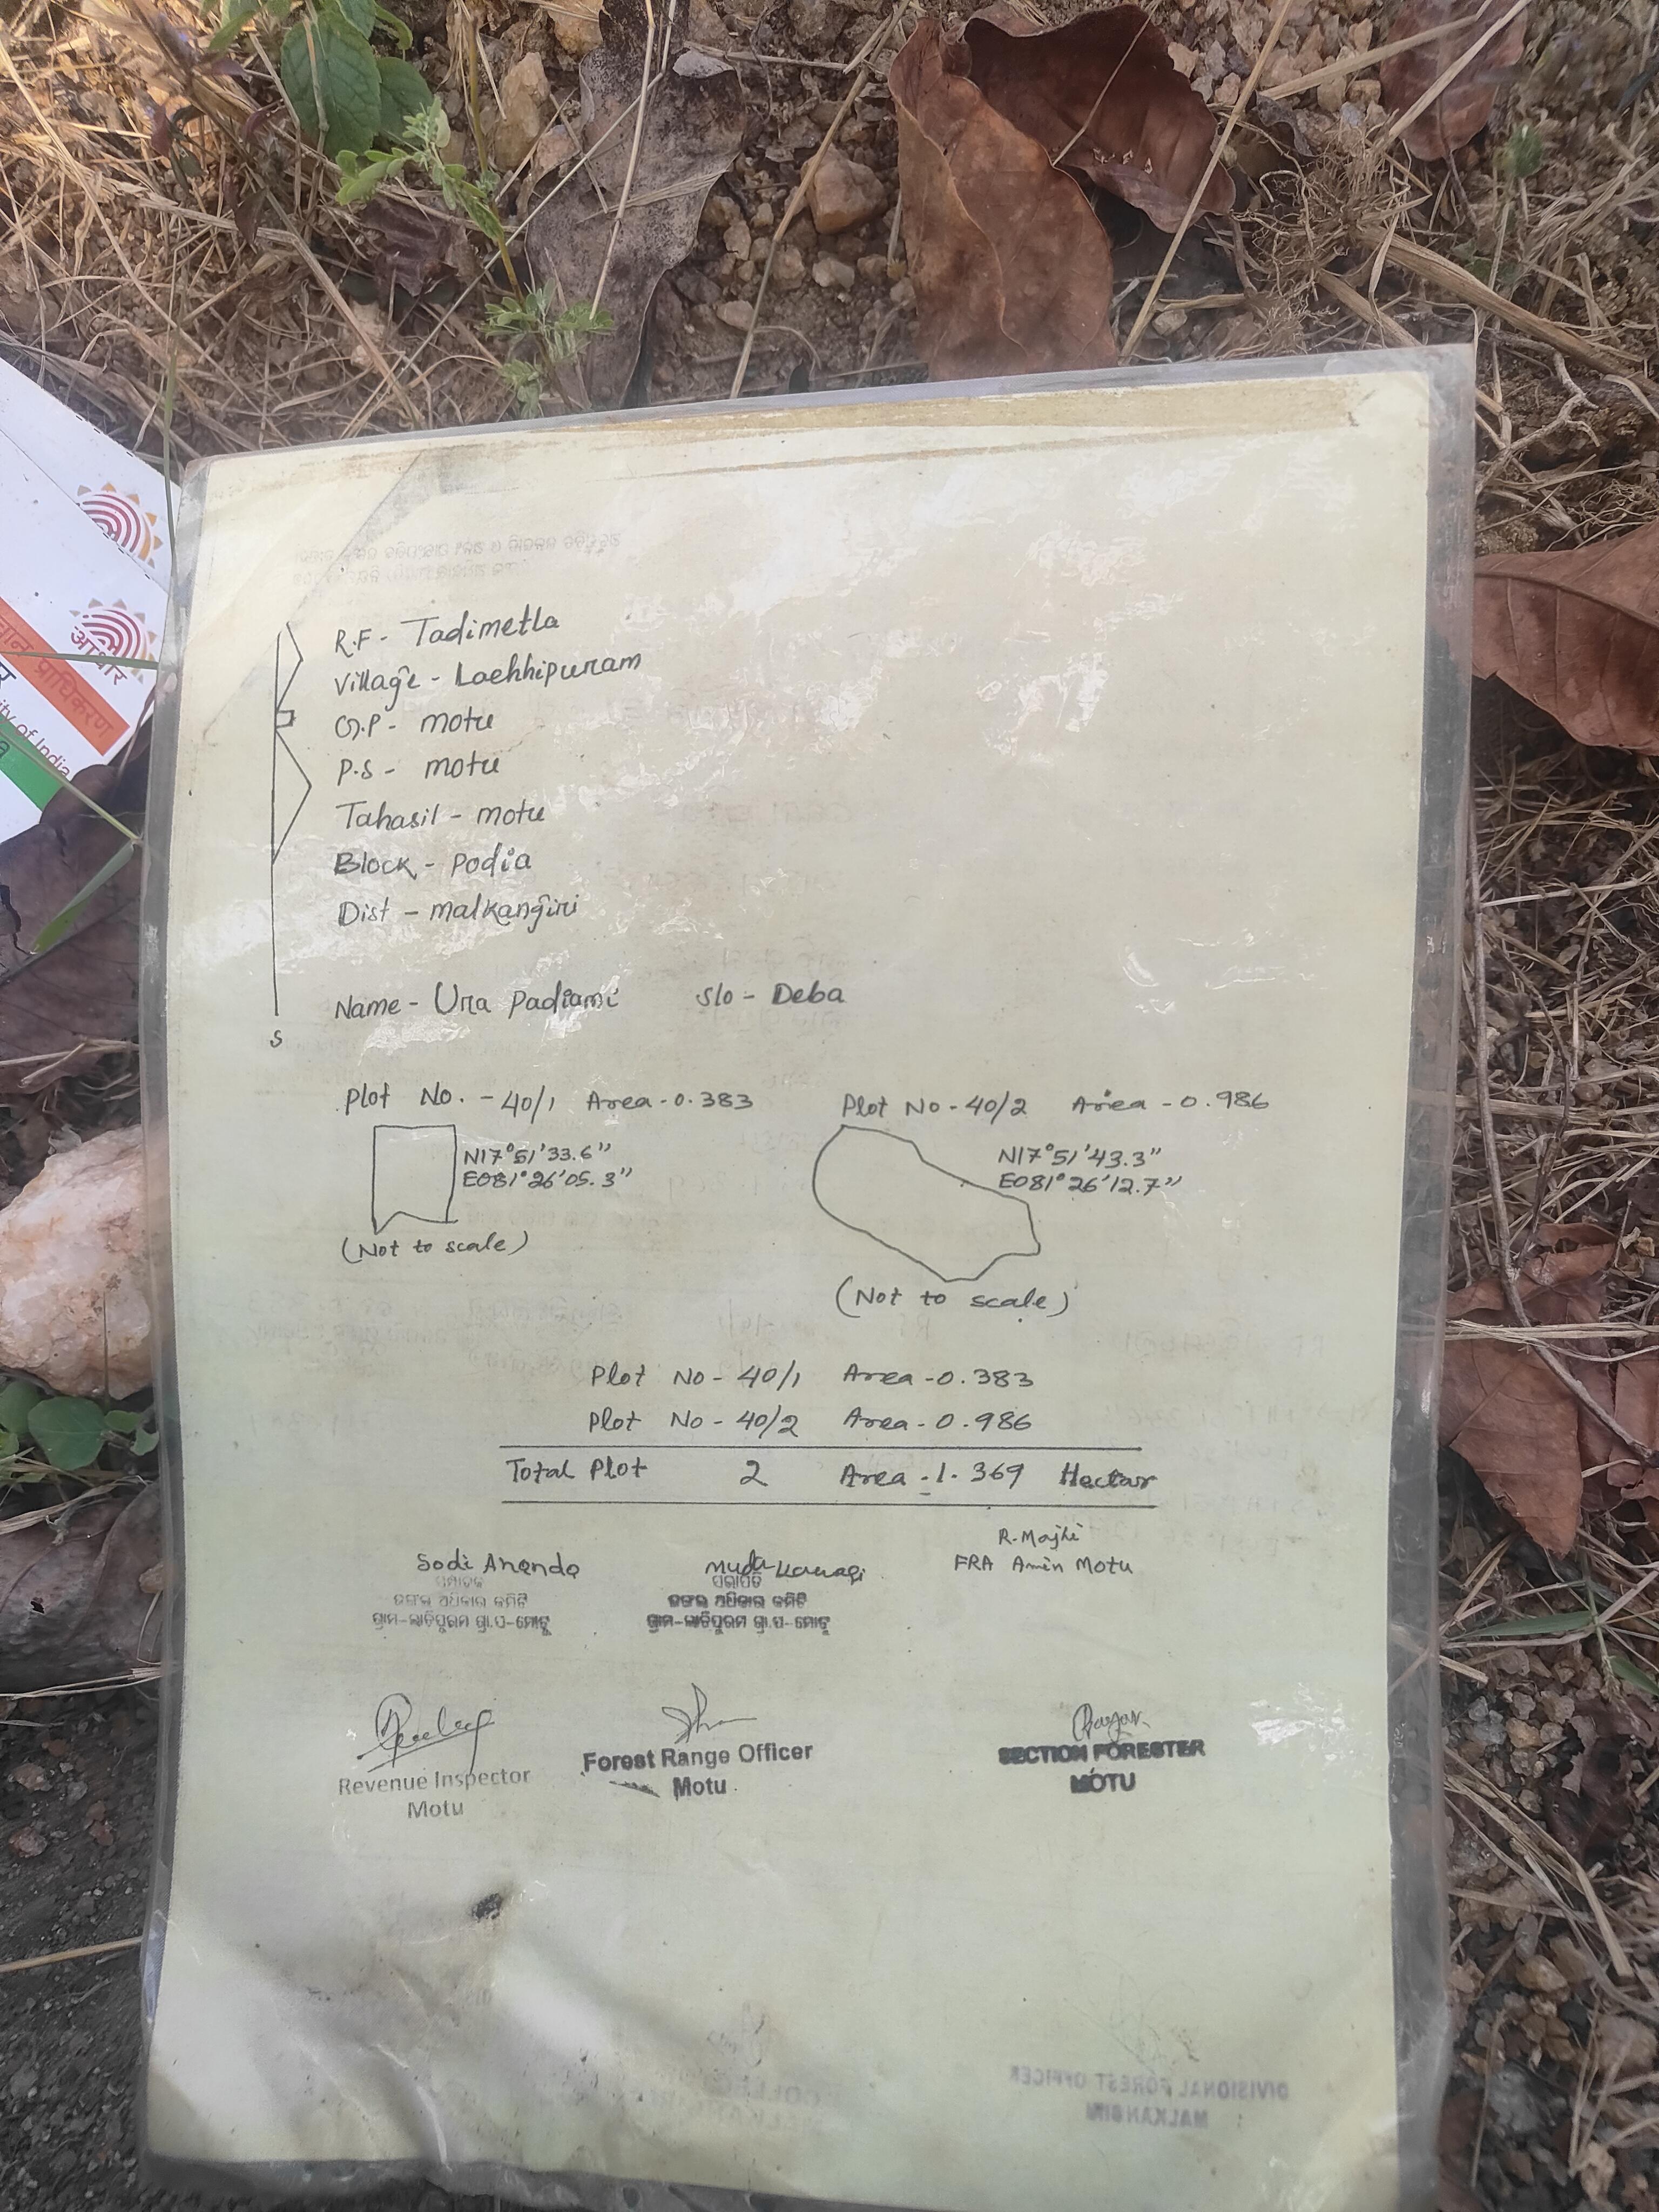 आधार
R.F - Tadimetla
Village - Lachhipuram
G.P - motu
P.S - motu
Tahasil - motu
Block - Podia
Dist - malkangiri
Name - Ura Padiami S/o - Deba
S
Plot No. - 40/1 Area - 0.383
N17°51'33.6"
E081°26'05.3"
(Not to scale)
Plot No - 40/2 Area - 0.986
N17°51'43.3"
E081°26'12.7"
(Not to scale)
Plot No - 40/1 Area - 0.383
Plot No - 40/2 Area - 0.986
Total Plot 2 Area - 1.369 Hectar
Sodi Ananda
ଜଙ୍ଗଲ ଅଧିକାର କମିଟି
ଗ୍ରାମ-ଲାଚିପୁରମ ଗ୍ରା.ପ-ମୋଟୁ
Muda
ସଭାପତି
ଜଙ୍ଗଲ ଅଧିକାର କମିଟି
ଗ୍ରାମ-ଲାଚିପୁରମ ଗ୍ରା.ପ-ମୋଟୁ
R. Majhi
FRA Amin Motu
Revenue Inspector
Motu
Forest Range Officer
Motu
SECTION FORESTER
MOTU
DIVISIONAL FOREST OFFICER
MALKANGIRI